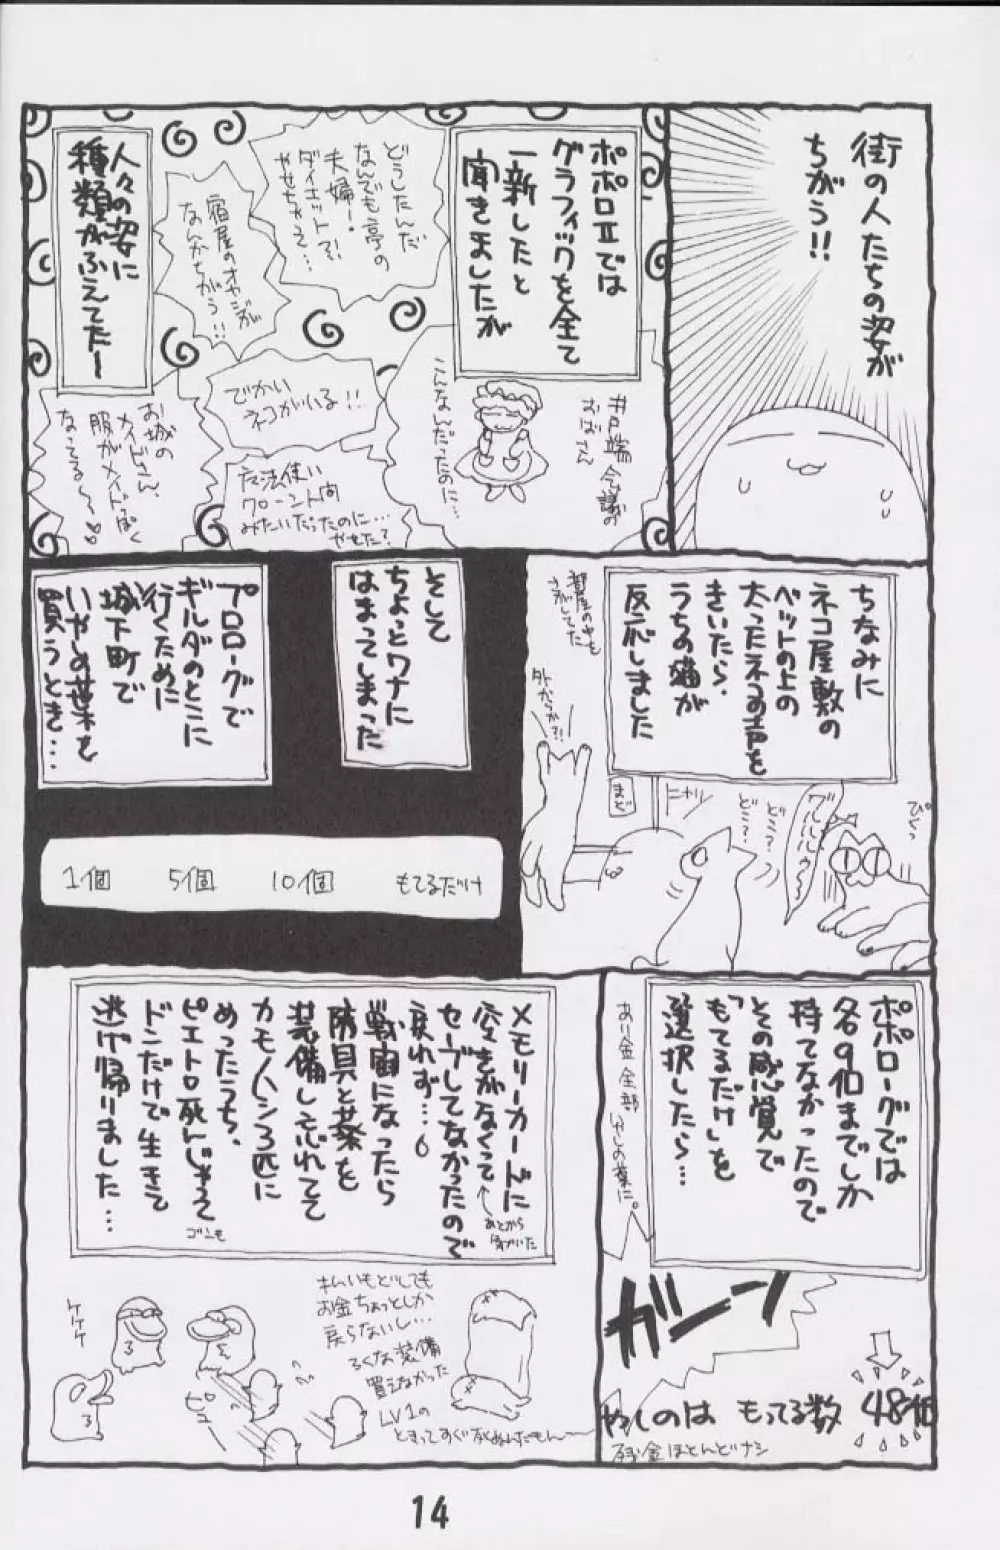 街の人たちの姿が
ちがう!!
ポポロⅡでは
グラフィックを全て
一新したと
聞きましたが
井戸端会議の
おばさん
こんなんだったのに…
どうしたんだ
なんでも亭の
夫婦ー!
ダイエット?!
やせちゃって…
宿屋のオヤジが
なんかちがう!!
でかい
ネコがいる!!
魔法使い
クローント向
みたいだったのに…
やめた?
人々の姿に
種類がふえてたー
お城の
メイドさん、
服がメイドっぽく
なってる〜〜♡
ちなみに
ネコ屋敷の
ベットの上の
太ったネコの声を
きいたら、
うちの猫が
反応しました
ぴくっ
グルルルゥ〜
どこ?
どこ?
ニャッ
まど
外からか?!
部屋の中も
さがしてた
そして
ちょっとワナに
はまってしまった
プロローグで
ギルダのとこに
行くために
城下町で
いやしの葉を
買うとき…
1個 5個 10個 もてるだけ
ポポローグでは
各9個までしか
持てなかったので
その感覚で
「もてるだけ」を
選択したら…
あり金全部
いやしの葉に。
ガーン
やしのは もってる数 48個
残金ほとんどナシ
メモリーカードに
空きがなくって
←あとから
気がついた
セーブしてなかったので
戻れず…
戦闘になったら
防具と薬を
装備し忘れてて
カモノハシ3匹に
めったうち、
ピエトロ死んじゃって
ゴンも
ドンだけで生きて
逃げ帰りました…
ケケケ
きんいもどしても
お金ちょっとしか
戻らないし…
ろくな装備
買えなかった
LV1の
とまってすぐ死ぬんだもん〜
14